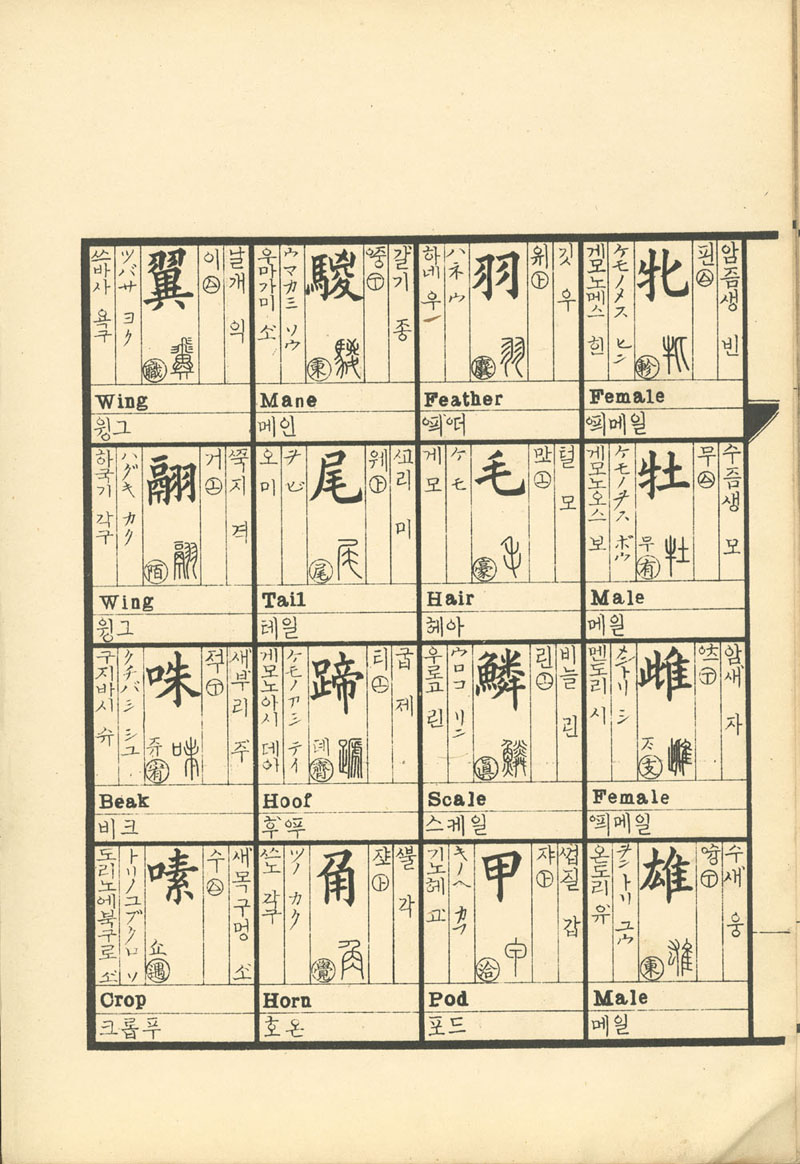 암즘생 빈
핀
牝
軫
ケモノメス ヒン
게모노메스 힌
Female
ᅋᅵ메일
수즘생 모
무
牡
무
有
ケモノヲス ボウ
게모노오스 보
Male
메일
암새 자
雌
支
メンドリ シ
멘도리 시
Female
ᅋᅵ메일
수새 웅
雄
東
ヲンドリ ユウ
온도리 유
Male
메일
깃 우
위
羽
麌
ハネ ウ
하네 우
Feather
털 모
만
毛
豪
ケ モ
게 모
Hair
헤아
비늘 린
린
鱗
眞
ウロコ リン
우로고 린
Scale
스케일
겁질 갑
쟈
甲
洽
キノヘ カフ
기노헤 고
Pod
포드
갈기 종
騣
東
ウマカミ ソウ
우마가미 소
Mane
메인
ᄭᅩ리 미
웨
尾
尾
ヲ ビ
오 미
Tail
테일
굽 제
티
蹄
뎨
齊
ケモノアシ テイ
게모노아시 데아
Hoof
후ᅋᅮ
ᄲᅮᆯ 각
쟢
角
覺
ツノ カク
쓰노 각구
Horn
호온
날개 익
이
翼
職
ツバサ ヨク
쓰바사 욕구
Wing
윙그
쭉지 격
거
翮
陌
ハグキ カク
하국기 각구
Wing
윙그
새부리 주
적
咮
쥬
宥
クチバシ シユ
구지바시 슈
Beak
비크
새목구멍 소
수
嗉
遇
トリノユブクロ ソ
도리노에북구로 소
Crop
크롭푸